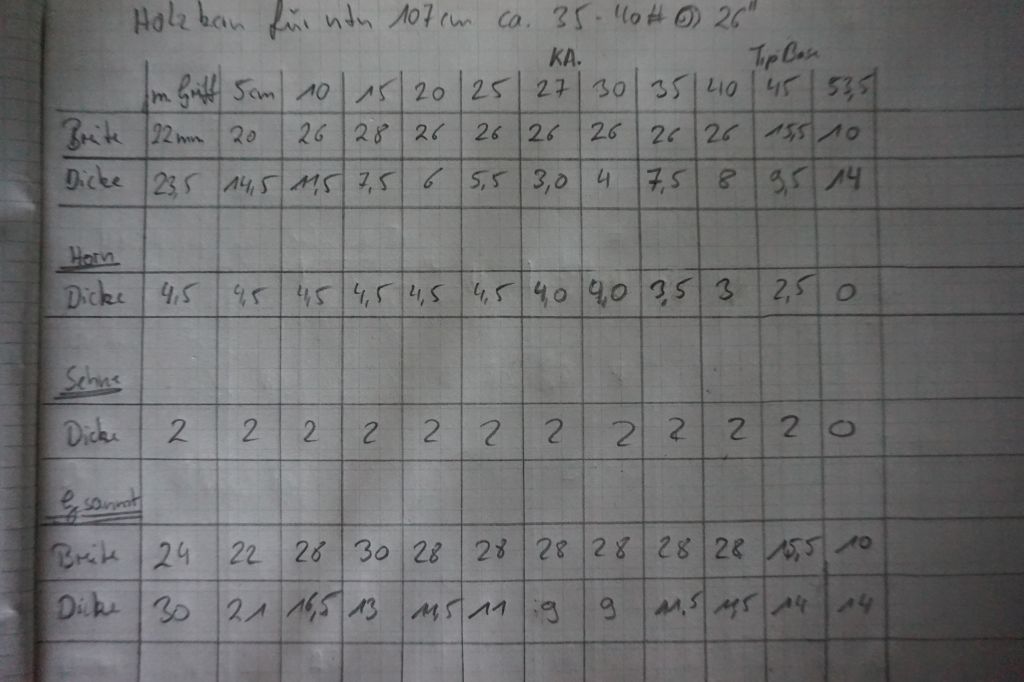 Holzkern für ntn 107cm ca. 35-40# @ 26"
KA. Tip Base
m Griff 5cm 10 15 20 25 27 30 35 40 45 53,5
Breite 22mm 20 26 28 26 26 26 26 26 26 15,5 10
Dicke 23,5 14,5 11,5 7,5 6 5,5 3,0 4 7,5 8 9,5 14
Horn
Dicke 4,5 4,5 4,5 4,5 4,5 4,5 4,0 4,0 3,5 3 2,5 0
Sehne
Dicke 2 2 2 2 2 2 2 2 2 2 2 0
gesammt
Breite 24 22 28 30 28 28 28 28 28 28 15,5 10
Dicke 30 21 16,5 13 11,5 11 9 9 11,5 11,5 14 14